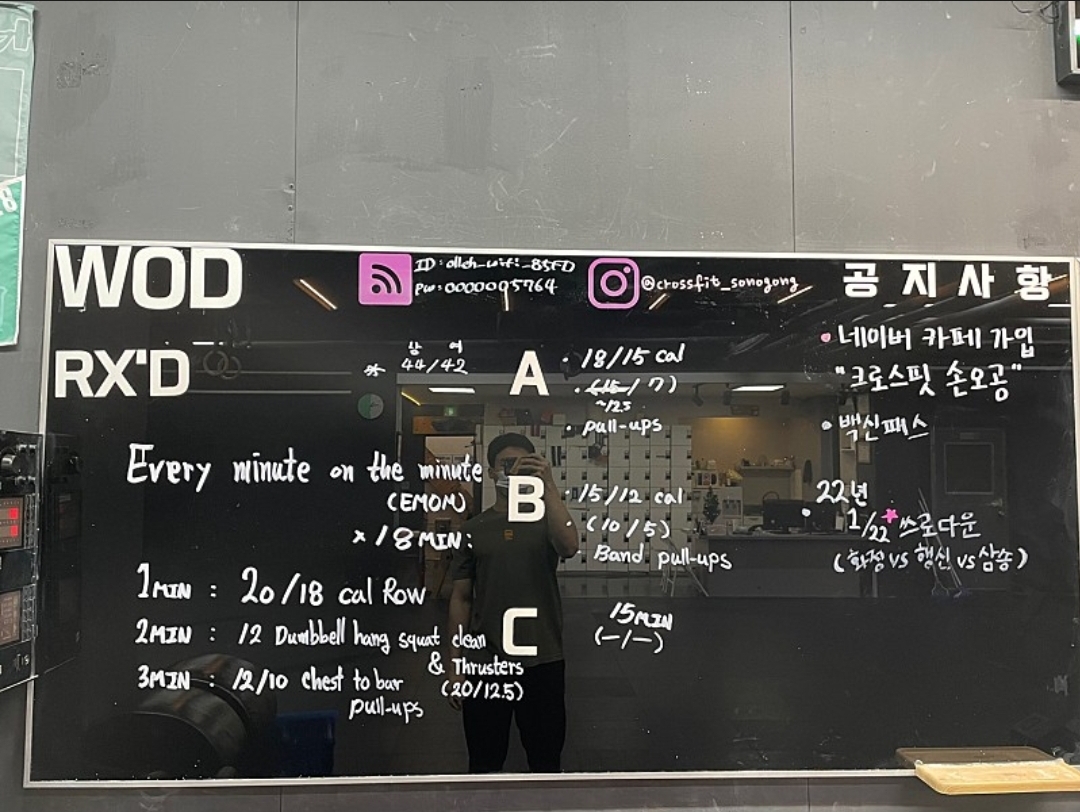 WOD
ID: olleh_wifi_B5FD
PW: 0000005764
@crossfit_sonogong
공지사항
RX'D
* 남 여
44/42
Every minute on the minute
(EMOM)
x 18 MIN:
1MIN : 20/18 cal Row
2MIN : 12 Dumbbell hang squat clean
& Thrusters
(20/12.5)
3MIN : 12/10 Chest to bar
pull-ups
A
• 18/15 cal
• (15/7)
~12.5
• pull-ups
B
• 15/12 cal
• (10/5)
• Band pull-ups
C
15MIN
(-/-)
• 네이버 카페 가입
"크로스핏 손오공"
• 백신패스
22년
• 1/22 쓰로다운
(화정 vs 행신 vs 삼송)